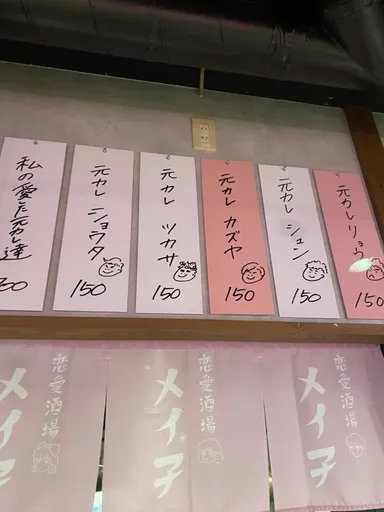 元カレ リョウ
150
元カレ シュン
150
元カレ カズヤ
150
元カレ ツカサ
150
元カレ ショウタ
150
私の愛した元カレ達
恋愛酒場
メイ子
恋愛酒場
メイ子
恋愛酒場
メイ子